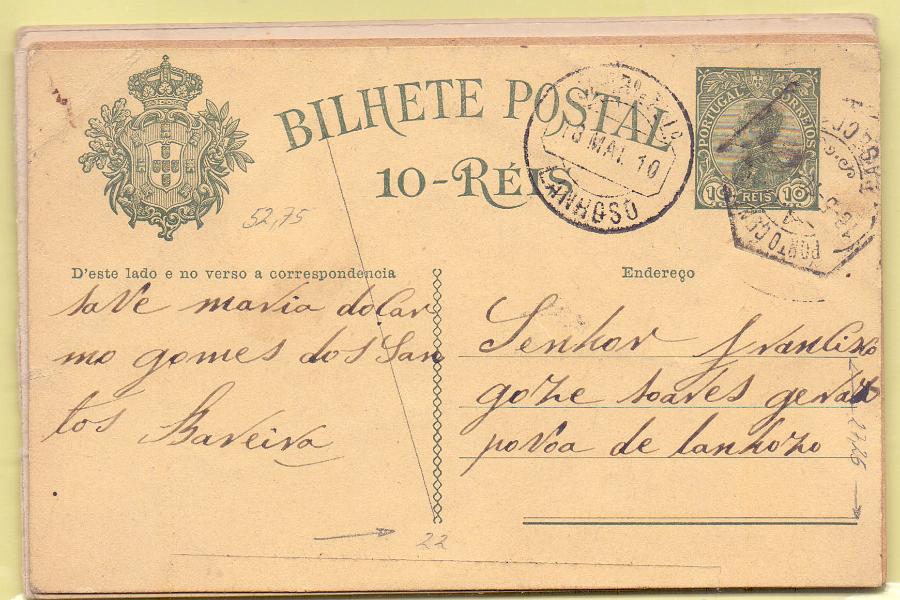 BILHETE POSTAL
10-RÉIS
PORTUGAL CORREIOS
10 REIS 10
18 MAI. 10
LANHOSO
PORTO CEN
52,75
D'este lado e no verso a correspondencia
Endereço
save maria do Car
mo gomes dos San
tos
Bareira
Senhor francisco
goze soares geraz
povoa de lanhozo
27,25
22